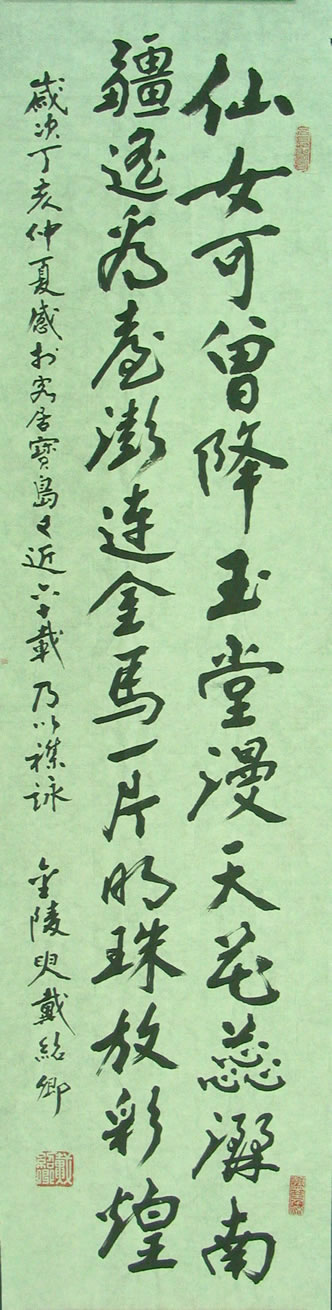 仙女可曾降玉堂漫天花蕊灑南
疆遙看臺澎連金馬一片明珠放彩煌
歲次丁亥仲夏感於客居寶島々近六十載乃以襍詠
金陵叟戴紹卿